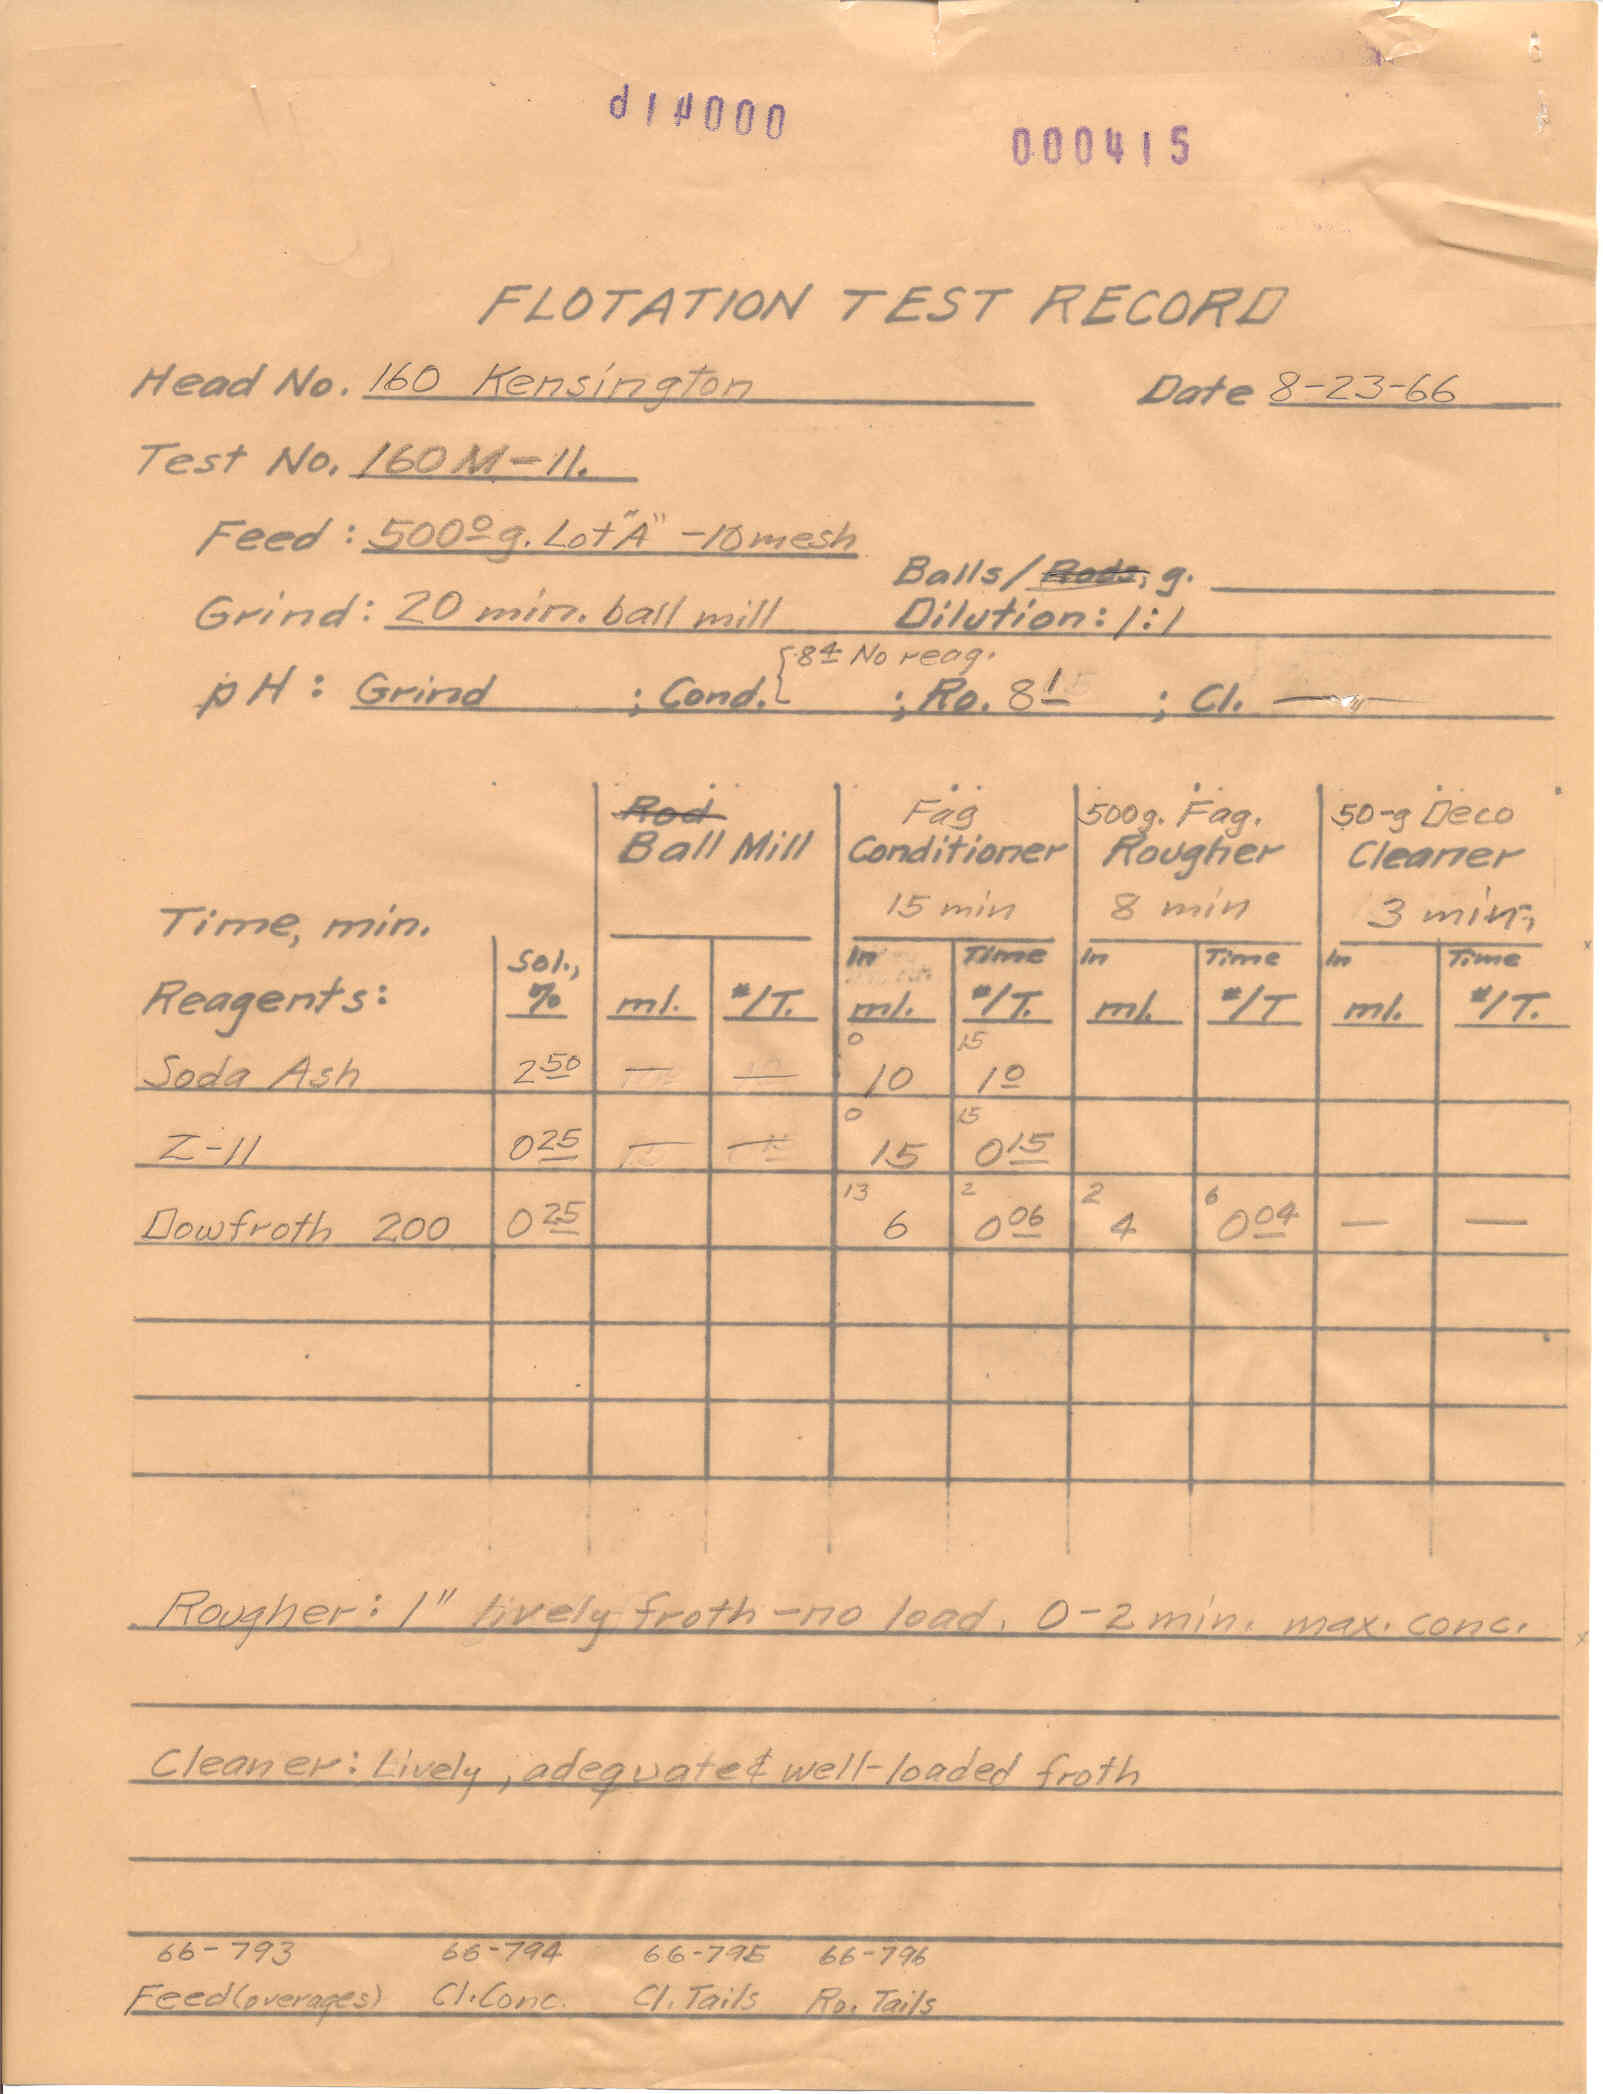 000415
FLOTATION TEST RECORD
Head No. 160 Kensington Date 8-23-66
Test No. 160M-11.
Feed: 500⁰ g. Lot "A" -10 mesh
Balls/Rods, g.
Grind: 20 min. ball mill Dilution: 1:1
8⁴ No reag.
pH: Grind ; Cond. ; Ro. 8¹ ; Cl. —
Rod Fag 500g. Fag. 50-g Deco
Ball Mill Conditioner Rougher Cleaner
Time, min. 15 min 8 min 3 min.
Sol., In Time In Time In Time
Reagents: % ml. #/T. ml. #/T. ml. #/T ml. #/T.
0 15
Soda Ash 2⁵⁰ — — 10 1⁰
0 15
Z-11 0²⁵ — — 15 0¹⁵
13 2 2 6
Dowfroth 200 0²⁵ 6 0⁰⁶ 4 0⁰⁴ — —
Rougher: 1" lively froth - no load. 0-2 min. max. conc.
Cleaner: Lively, adequate & well-loaded froth
66-793 66-794 66-795 66-796
Feed (overages) Cl. Conc. Cl. Tails Ro. Tails